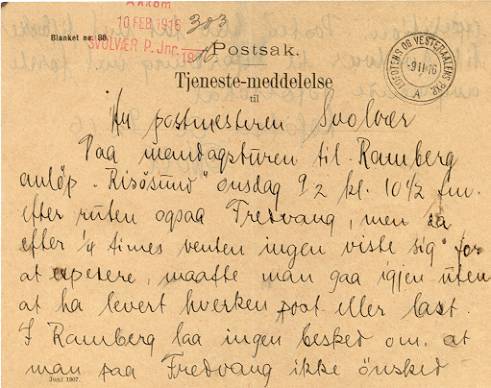 Ankom
10 FEB 1916
SVOLVÆR P. Jnr.
303
Blanket nr. 30.
Postsak.
LOFOTENS OG VESTERAALENS
-9 II 16
A
Tjeneste-meddelelse
til
Hr postmesteren Svolvær
Paa mandagsturen til Ramberg
anlöp "Risösund" onsdag 9/2 kl. 10 1/2 fm.
efter ruten ogsaa Fredvang, men da
efter 1/4 times venten ingen viste sig for
at expedere, maatte man gaa igjen uten
at ha levert hverken post eller last.
I Ramberg laa ingen besked om at
man paa Fredvang ikke önsked
Juni 1907.